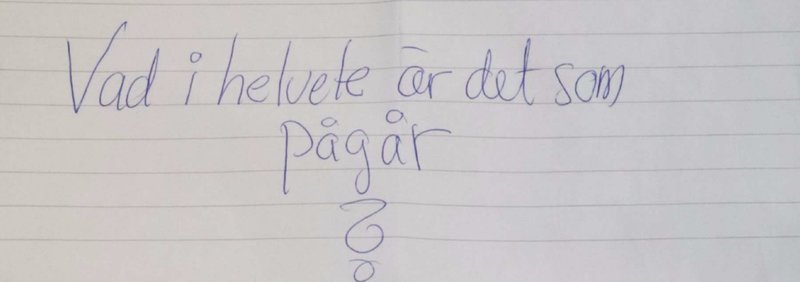 Vad i helvete är det som
pågår
?